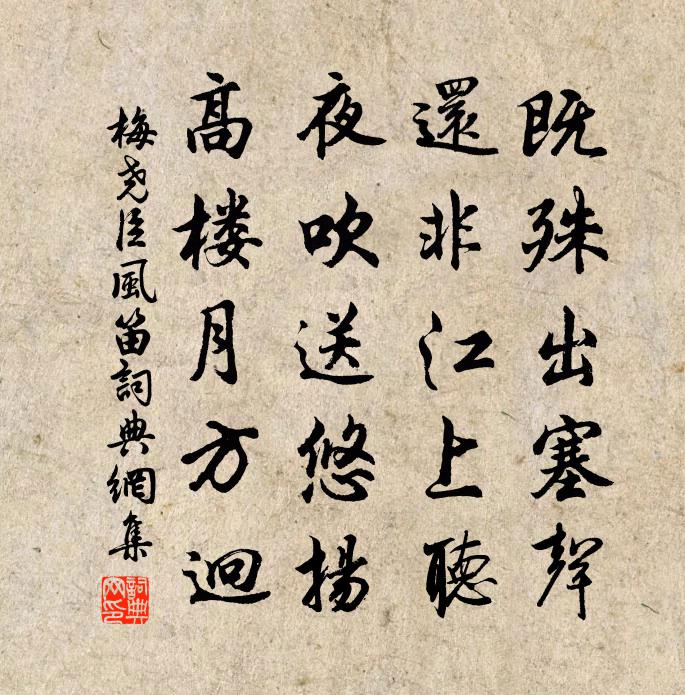 既殊出塞聲
還非江上聽
夜吹送悠揚
高楼月方迥
梅尧臣風笛詞典網集
詞典
网印